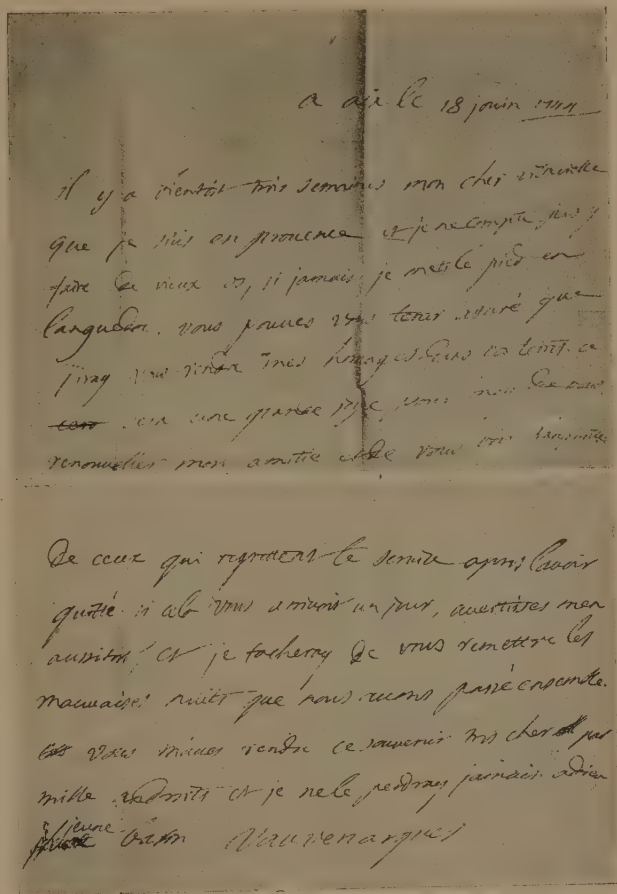 a aix le 18 jouin 1744
il y a bientost trois semaines mon cher
que je suis en prouence et je ne compte pas y
faire de vieux os, si jamais je mets le pied en
languedoc, vous pouues vous tenir assuré que
j'iray vous rendre mes homages dans
sera une grande joye pour moy de vous
renouueller mon amitie et de vous voir
De ceux qui regrettent le seruice apres lavoir
quitté si cela vous arriuoit un jour, auertisses men
aussitost et je tacheray de vous remettre les
mauuaises nuits que nous auons passé ensemble.
vous maues rendu ce souuenir tres cher par
mille endroits et je ne le perdray jamais adieu
jeune Vauuenargues